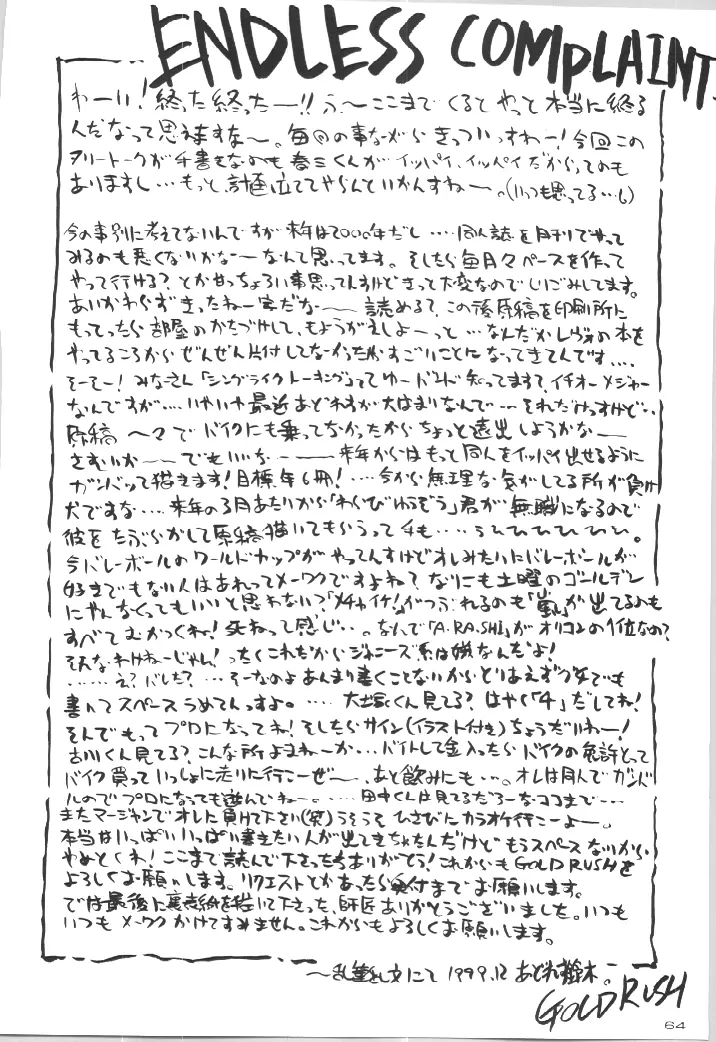 ENDLESS COMPLAINT
わーい!終った終ったー!!う、〜ここまでくるとやっと本当に終る
んだなって思えますな〜。毎回の事ながらきっついっすわー!今回この
フリートークが手書きなのも春三くんがイッパイ、イッパイだからってのも
ありますし…もっと計画立ててやらんといかんすねー。(いつも思ってる…)
今の事別に考えてないんですが来年は2000年だし…同人誌を月刊でやって
みるのも悪くないかなーなんて思ってます。そしたら毎月々ペースを作って
やって行ける?とかせっちょろい事思ってんすけどきって大変なのでしりごみしてます。
あいかわらずきったねー字だなー 読める?この後原稿を印刷所に
もってったら部屋のかたづけして、もようがえしよーっと…なんだかレヴォの本を
やってるころからぜんぜん片付してなかったからすごいことになってきてんです…
そーそー!みなさん「シングライクトーキング」ってゆーバンド知ってますて、イチオーメジャー
なんですが…いやいや最近あどれすが大はまりなんで…それだけっすけど…
原稿 〜々でバイクにも乗ってなかったからちょっと遠出しようかなー
さむいかーーでもいいなーー来年からはもっと同人をイッパイ出せるように
ガンバって描きます!目標年6冊!…今から無理な気がしてる所が負け
犬ですな…来年の3月あたりから「わらびゆうぞう」君が無職になるので
彼をたぶらかして原稿描いてもらうって手も…うひひひひひひ。
今バレーボールのワールドカップがやってんすけどオレみたいにバレーボールが
好きでもない人はあれってメーワクですよね?なにも土曜のゴールデン
にやんなくってもいいと思わない?「メチャイケ!」がつぶれるのも「嵐」が出てるのも
すべてむかつくね!死ねって感じ…。なんで「A.RA.SHI」がオリコンの1位なの?
そんなわけねーじゃん!ったくこれだからジャニーズ系は嫌なんだよ!
……え?バレた?…そーなのよあんまり書くことないからとりあえず何でも
書いてスペースうめてんっすよ。…大塚くん見てる?はやく「4」だしてね!
そんでもってプロになってね!そしたらサイン(イラスト付き)ちょうだいねー!
古川くん見てる?こんな所よまねーか…バイトして金入ったらバイクの免許とって
バイク買っていっしょに走りに行こーぜー、あと飲みにも…。オレは同人でガンバ
ルのでプロになっても遊んでねー。…田中くんは見てるだろーなココまで…
またマージャンでオレに負けて下さい(笑)うそうそひさびにカラオケ行こーよー。
本当はいっぱいいっぱい書きたい人が出てきちゃたんだけどもうスペースないから
やめとくね!ここまで読んで下さった方ありがとう!これからもGOLD RUSHを
よろしくお願いします。リクエストとかあったら奥付までお願いします。
では最後に裏表紙を描いて下さった、師匠ありがとうございました。いつも
いつもメーワクかけてすみません。これからもよろしくお願いします。
〜乱筆乱文にて 1999.12 あどれす鈴木。
GOLD RUSH
64